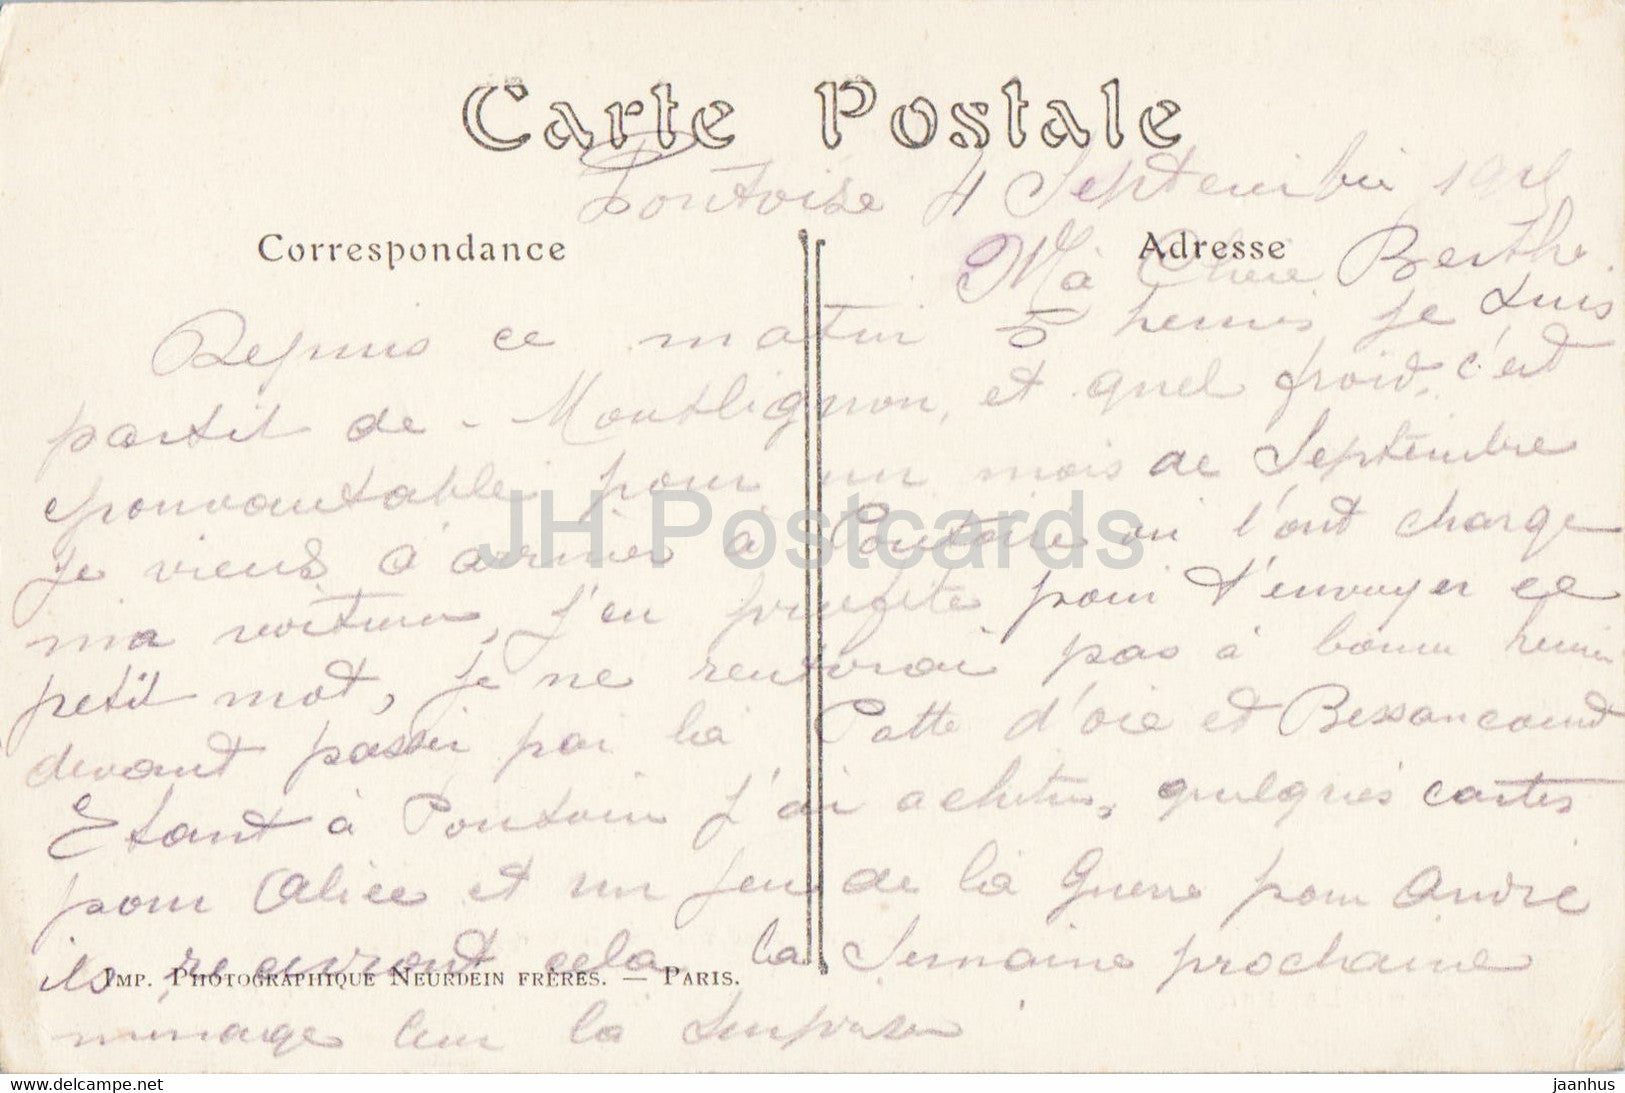 Carte Postale
Pontoise 4 Septembre
Correspondance
Adresse
Ma Chere Berthe.
Depuis ce matin 5 heures je suis
partit de - Montlignon, et quel froid, c'est
epouvantable pour un mois de Septembre
Je viens d'arriver à Pontoise ou l'ont charge
ma voiture, j'en profite pour t'envoyer ce
petit mot, je ne rentrerai pas à bonne heure
devant passer par la Patte d'oie et Bessancourt
Etant à Pontoise j'ai achetés, quelques cartes
pour Alice et un jeu de la Guerre pour André
ils recevront cela la Semaine prochaine
IMP. PHOTOGRAPHIQUE NEURDEIN FRÈRES. — PARIS.
menage leur la Surprise
JH Postcards
www.delcampe.net
jaanhus